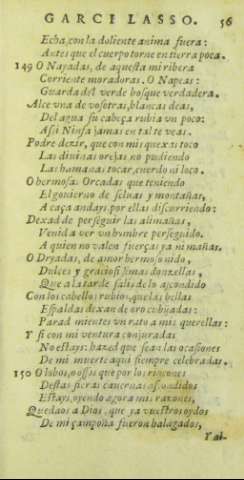 GARCI LASSO. 56
Echa, con la doliente anima fuera:
Antes que el cuerpo torne en tierra poca.
149 O Nayades, de aquesta mi ribera
Corriente moradoras. O Napeas:
Guarda del verde bosque verdadera.
Alce vna de vosotras, blancas deas,
Del agua su cabeça rubia vn poco:
Assi Ninfa jamas en tal te veas.
Podre dezir, que con mis quexas toco
Las diuinas orejas no pudiendo
Las humanas tocar, cuerdo ni loco.
O hermosas Oreadas que teniendo
El gouierno de seluas y montañas,
A caça andays por ellas discurriendo:
Dexad de perseguir las alimañas,
Venid a ver vn hombre perseguido.
A quien no valen fuerças ya ni mañas.
O Dryadas, de amor hermoso nido,
Dulces y graciosissimas donzellas,
Que a la tarde salis de lo ascondido
Con los cabellos rubios, que las bellas
Espaldas dexan de oro cubijadas:
Parad mientes vn rato a mis querellas:
Y si con mi ventura conjuradas
No estays: hazed que sean las ocasiones
De mi muerte aqui siempre celebradas.
150 O lobos, o ossos que por los rincones
Destas fieras cauernas ascondidos
Estays, oyendo agora mis razones,
Quedaos a Dios, que ya vuestros oydos
De mi çampoña fueron halagados,
Y al-